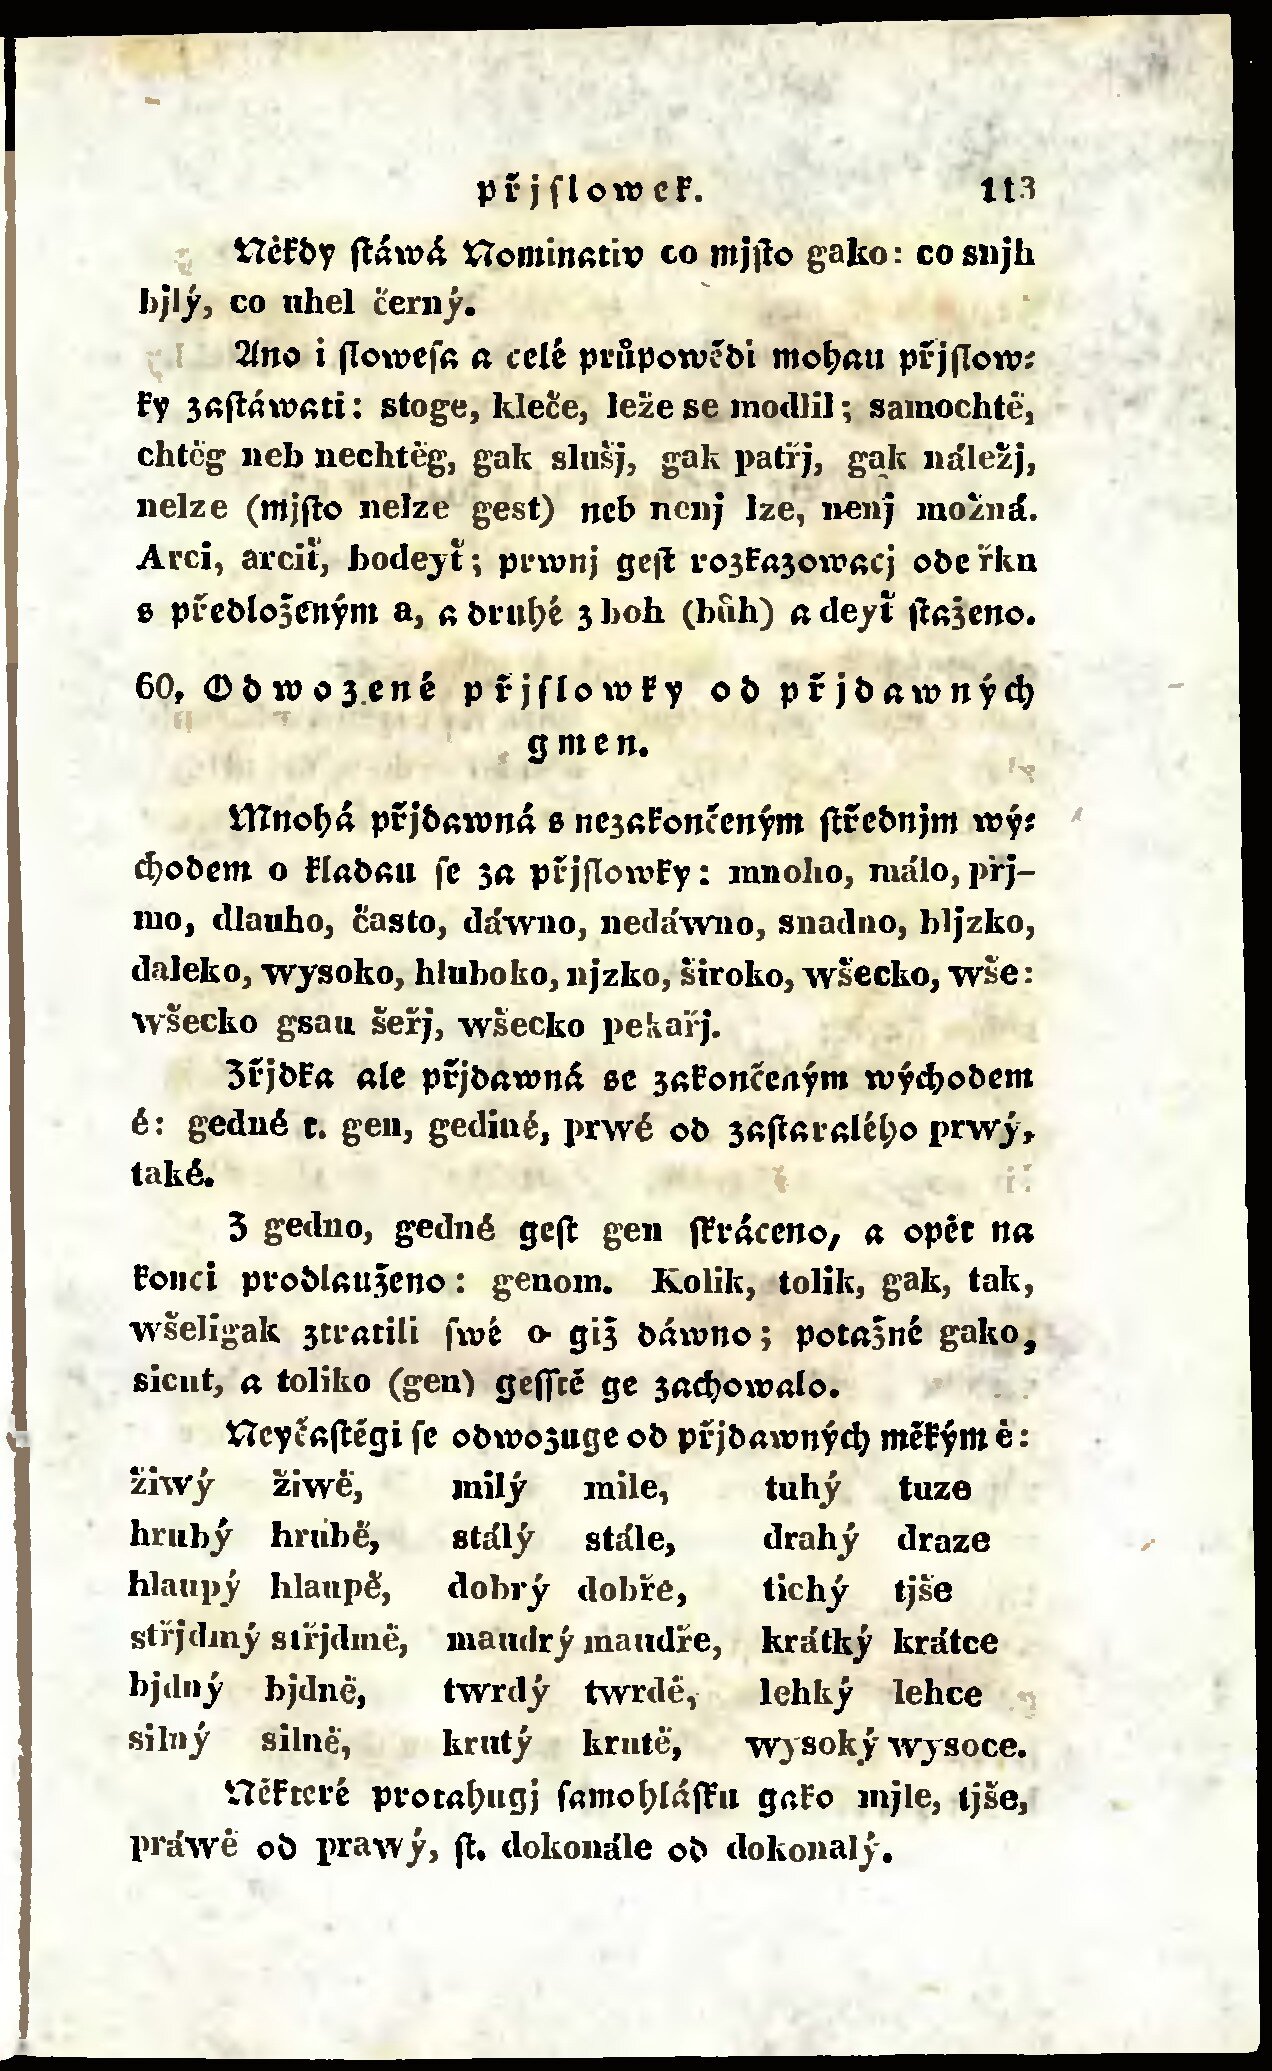 přjſlowek. 113
Někdy ſtáwá Nominativ co mjſto gako: co snjh
bjlý, co uhel černý.
Ano i ſloweſa a celé průpowědi mohau přjſlow⸗
ky zaſtáwati: stoge, kleče, leže se modlil; samochtě,
chtěg neb nechtěg, gak slušj, gak patřj, gak náležj,
nelze (mjſto nelze gest) neb nenj lze, nenj možná.
Arci, arciť, bodeyť; prwnj geſt rozkazowacj ode řku
s předloženým a, a druhé z boh (bůh) a deyť ſtaženo.
60, Odwozené přjſlowky od přjdawných
gmen.
Mnohá přjdawná s nezakončeným ſtřednjm wý⸗
chodem o kladau ſe za přjſlowky: mnoho, málo, přj-
mo, dlauho, často, dáwno, nedáwno, snadno, bljzko,
daleko, wysoko, hluboko, njzko, široko, wšecko, wše:
wšecko gsau šeřj, wšecko pekařj.
Zřjdka ale přjdawná se zakončeným wýchodem
é: gedné t. gen, gediné, prwé od zaſtaralého prwý,
také.
Z gedno, gedné geſt gen ſkráceno, a opět na
konci prodlauženo: genom. Kolik, tolik, gak, tak,
wšeligak ztratili ſwé o giž dáwno; potažné gako,
sicut, a toliko (gen) geſſtě ge zachowalo.
Neyčaſtěgi ſe odwozuge od přjdawných měkým ě:
žiwý žiwě, milý mile, tuhý tuze
hrubý hrubě, stálý stále, drahý draze
hlaupý hlaupě, dobrý dobře, tichý tjše
střjdmý střjdmě, maudrý maudře, krátký krátce
bjdný bjdně, twrdý twrdě, lehký lehce
silný silně, krutý krutě, wysoký wysoce.
Některé protahugj ſamohláſku gako mjle, tjše,
práwě od prawý, ſt. dokonále od dokonalý.